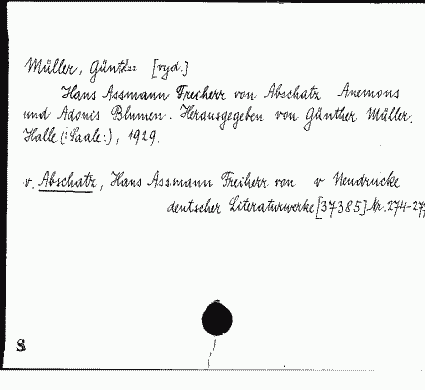 Müller, Günther [vyd.]
Hans Assmann Freiherr von Abschatz Anemons
und Adonis Blumen. Herausgegeben von Günther Müller.
Halle (:Saale:), 1929.
v. Abschatz, Hans Assmann Freiherr von v Neudrucke
deutscher Literaturwerke [37385] Nr. 274-277
S